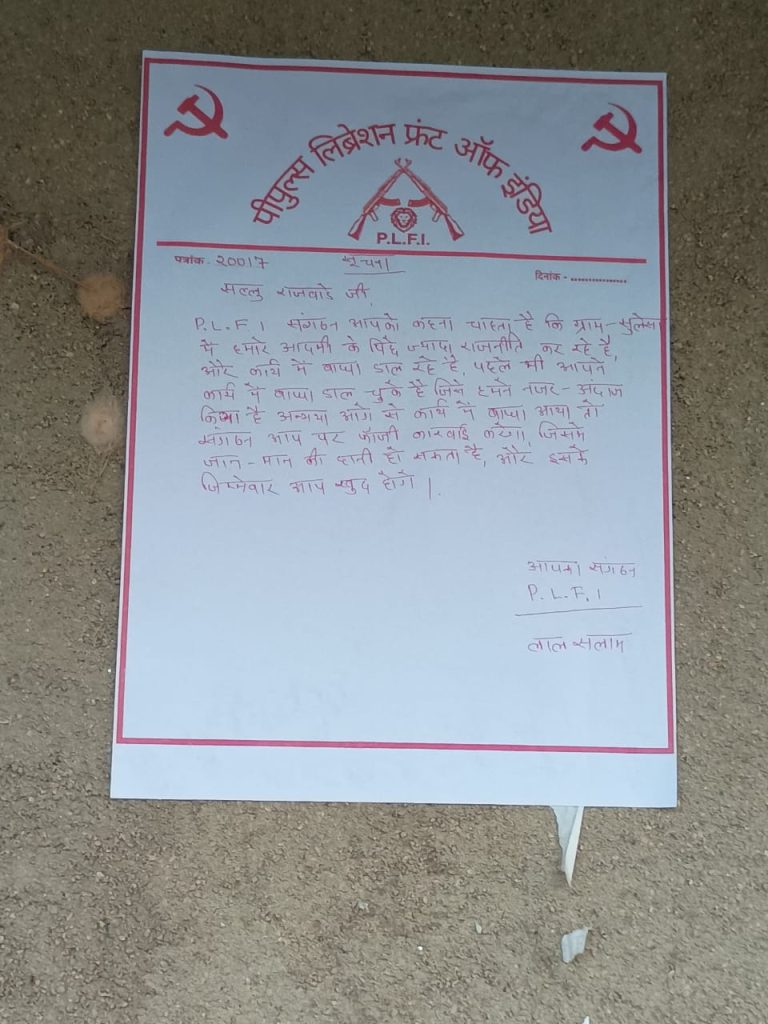 पीपुल्स लिब्रेशन फ्रंट ऑफ इंडिया
P.L.F.I.
पत्रांक - 20017 सूचना
दिनांक -
राजवाडे जी,
P.L.F.I संगठन आपको कहना चाहता है कि ग्राम-
में हमारे आदमी के पिछे ज्यादा राजनीति कर रहे है,
और कार्य में बाधा डाल रहे है, पहले भी आपने
कार्य में बाधा डाल चुके है जिसे हमने नजर-अंदाज
किया है अन्यथा आगे से कार्य में बाधा आया तो
संगठन आप पर फौजी कारवाई करेगा, जिसमे
जान-मान की हानी हो सकता है, और इसके
जिम्मेवार आप खुद होंगे।
आपका संगठन
P.L.F.I
लाल सलाम